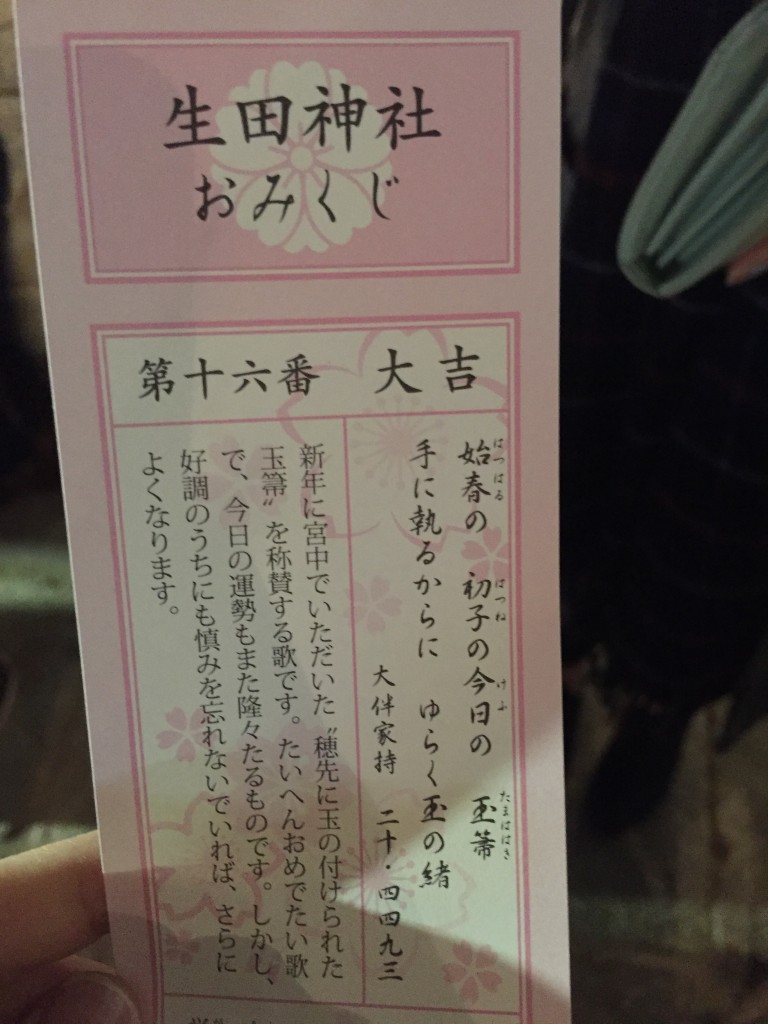 生田神社
おみくじ
第十六番　大吉
始春の　初子の今日の　玉箒
はつはる
はつね
けふ
たまははき
手に執るからに　ゆらく玉の緒
大伴家持　二十・四四九三
新年に宮中でいただいた〝穂先に玉の付けられた
玉箒〟を称賛する歌です。たいへんおめでたい歌
で、今日の運勢もまた隆々たるものです。しかし、
好調のうちにも慎みを忘れないでいれば、さらに
よくなります。